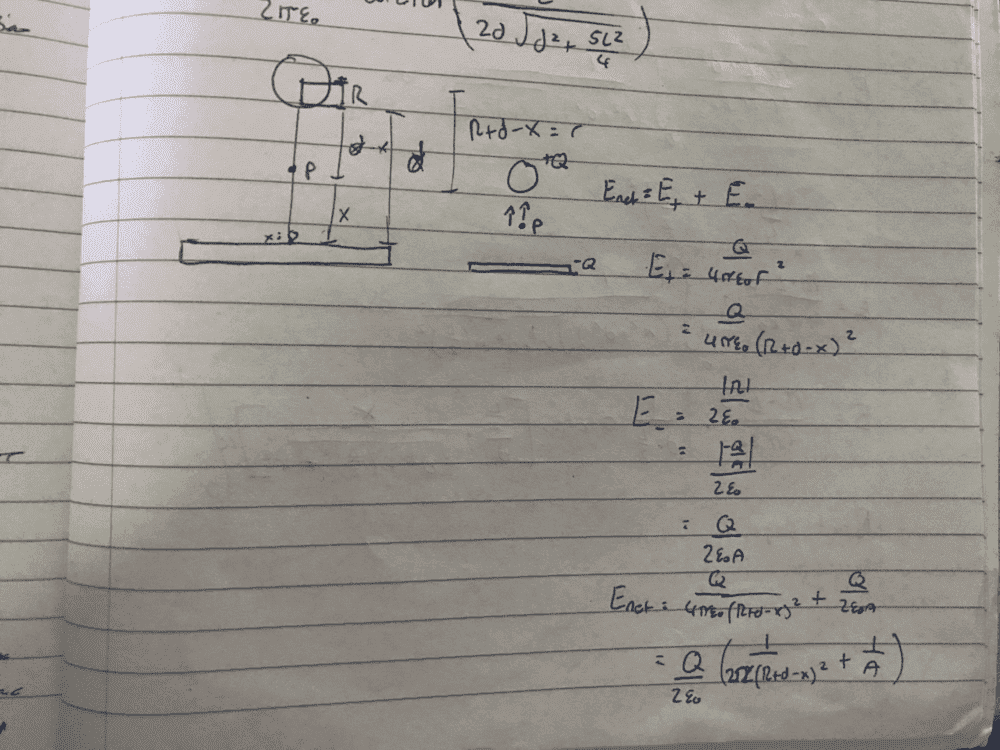 2πε₀
2d √(d² + 5L²/4)
R
R+d-x = r
d-x
d
+Q
P
E_net = E₊ + E₋
x
P
x=0
-Q
E₊ = Q/(4πε₀r²)
= Q/(4πε₀(R+d-x)²)
E₋ = |η|/(2ε₀)
= |-Q/A|/(2ε₀)
= Q/(2ε₀A)
E_net = Q/(4πε₀(R+d-x)²) + Q/(2ε₀A)
= Q/(2ε₀) (1/(2π(R+d-x)²) + 1/A)